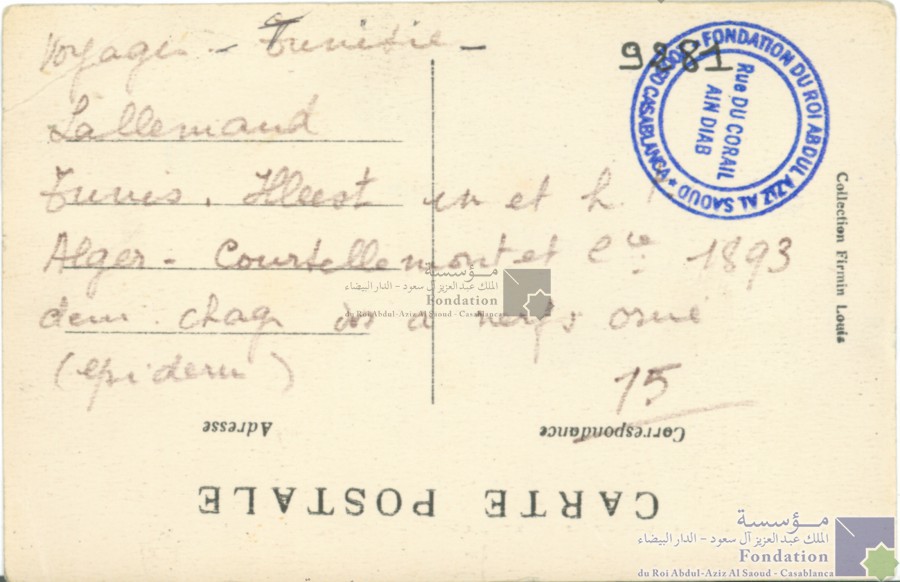 Voyages - Tunisie -
9281
FONDATION DU ROI ABDUL AZIZ AL SAOUD * CASABLANCA
Rue DU CORAIL
AIN DIAB
Lallemand
Tunis.
et h.
Alger - Courtellemont et Cie 1893
demi chag à nerfs orné
(épiderm)
15
Collection Firmin Louis
Adresse
Correspondance
CARTE POSTALE
مؤسسة
الملك عبد العزيز آل سعود - الدار البيضاء
Fondation
du Roi Abdul-Aziz Al Saoud - Casablanca
مؤسسة
الملك عبد العزيز آل سعود - الدار البيضاء
Fondation
du Roi Abdul-Aziz Al Saoud - Casablanca